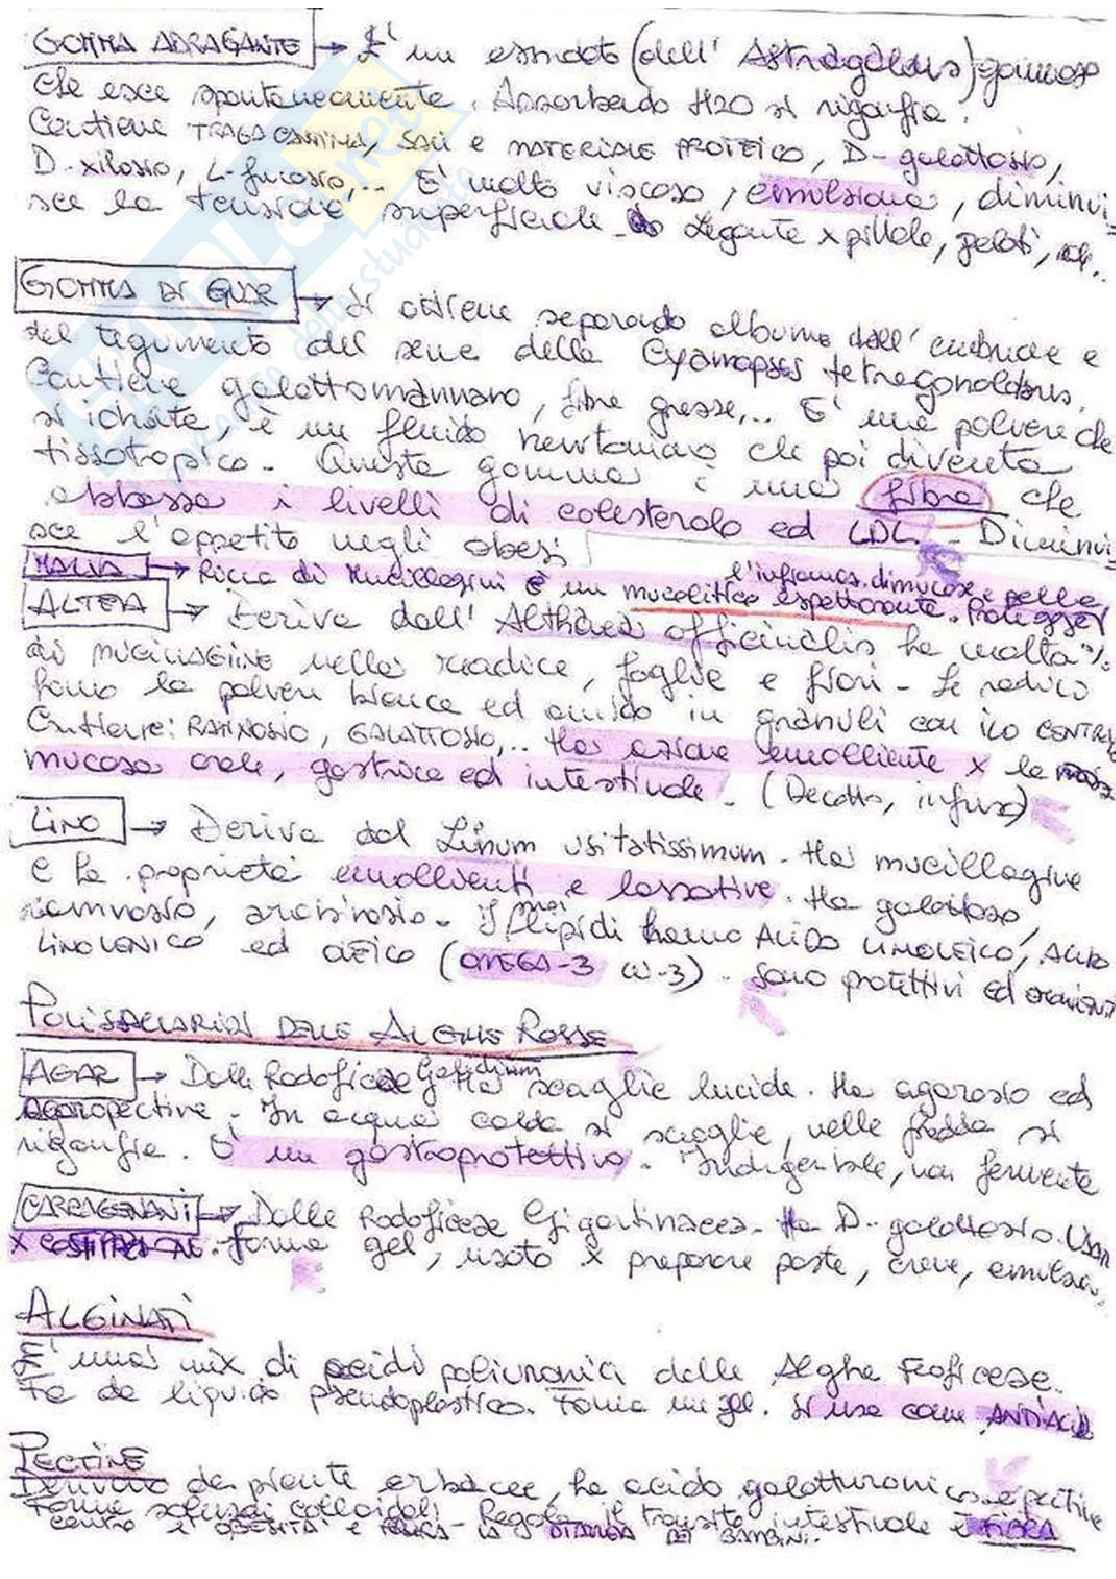 GOMMA ADRAGANTE → E' un essudato (dell' Astragalus) gommoso
che esce spontaneamente. Assorbendo H2O si rigonfia.
Contiene TRAGACANTINA, SALI e MATERIALE PROTEICO, D-galattosio,
D-xilosio, L-fucosio,... E' molto viscoso, emulsiona, diminui=
sce la tensione superficiale. Legante x pillole, gelati,
GOMMA DI GUAR → Si ottiene separando albume dall' embrione e
dal tegumento del seme della Cyamopsis tetragonolobus.
Contiene galattomannano, fibre grezze,... E' una polvere che
si idrata, è un fluido newtoniano che poi diventa
tissotropico. Questa gomma è una fibra che
abbassa i livelli di colesterolo ed LDL. - Diminui=
sce l'appetito negli obesi
MALVA → Ricca di Mucillagini è un mucolitico espettorante. Protegge
l'infiamaz. di mucose e pelle
ALTEA → Deriva dall' Althaea officinalis ha molta %
di MUCILLAGINE nella radice, foglie e fiori - Le radici
hanno la polvere bianca ed amido in granuli con ilo CENTRALE
Contiene: RAMNOSIO, GALATTOSIO,.. Ha azione emolliente x la
mucosa orale, gastrica ed intestinale. (Decotto, infuso)
LINO → Deriva dal Linum usitatissimum. Ha mucillagine
e ha proprietà emollienti e lassative. Ha galattosio,
ramnosio, arabinosio - I suoi lipidi hanno ACIDO LINOLEICO, ACIDO
LINOLENICO ed OLEICO (OMEGA-3 ω-3). Sono protettivi ed
POLISACCARIDI DELLE ALGHE ROSSE
AGAR → Dalle Rodoficee Gelidium Ha scaglie lucide. Ha agarosio ed
agaropectina. In acqua calda si scioglie, nella fredda si
rigonfia. È un gastroprotettivo. Indigeribile, non fermenta
CARRAGENANI → Dalle Rodoficee Gigartinacea. Ha D-galattosio. Usan
x COSTIPAZIONE. Forma gel, usato x preparare paste, creme, emulsioni.
ALGINATI
E' una mix di acidi poliuronici delle Alghe Feoficeae.
Fa da liquido pseudoplastico. Forma un gel. Si usa come ANTIACIDO
PECTINE
Derivano da piante erbacee, ha acido galatturonico e pectine
Forma soluzioni colloidali. Regola il transito intestinale è FIBRA
CONTRO L'OBESITÀ e BLOCCA LA DIARREA DEI BAMBINI.